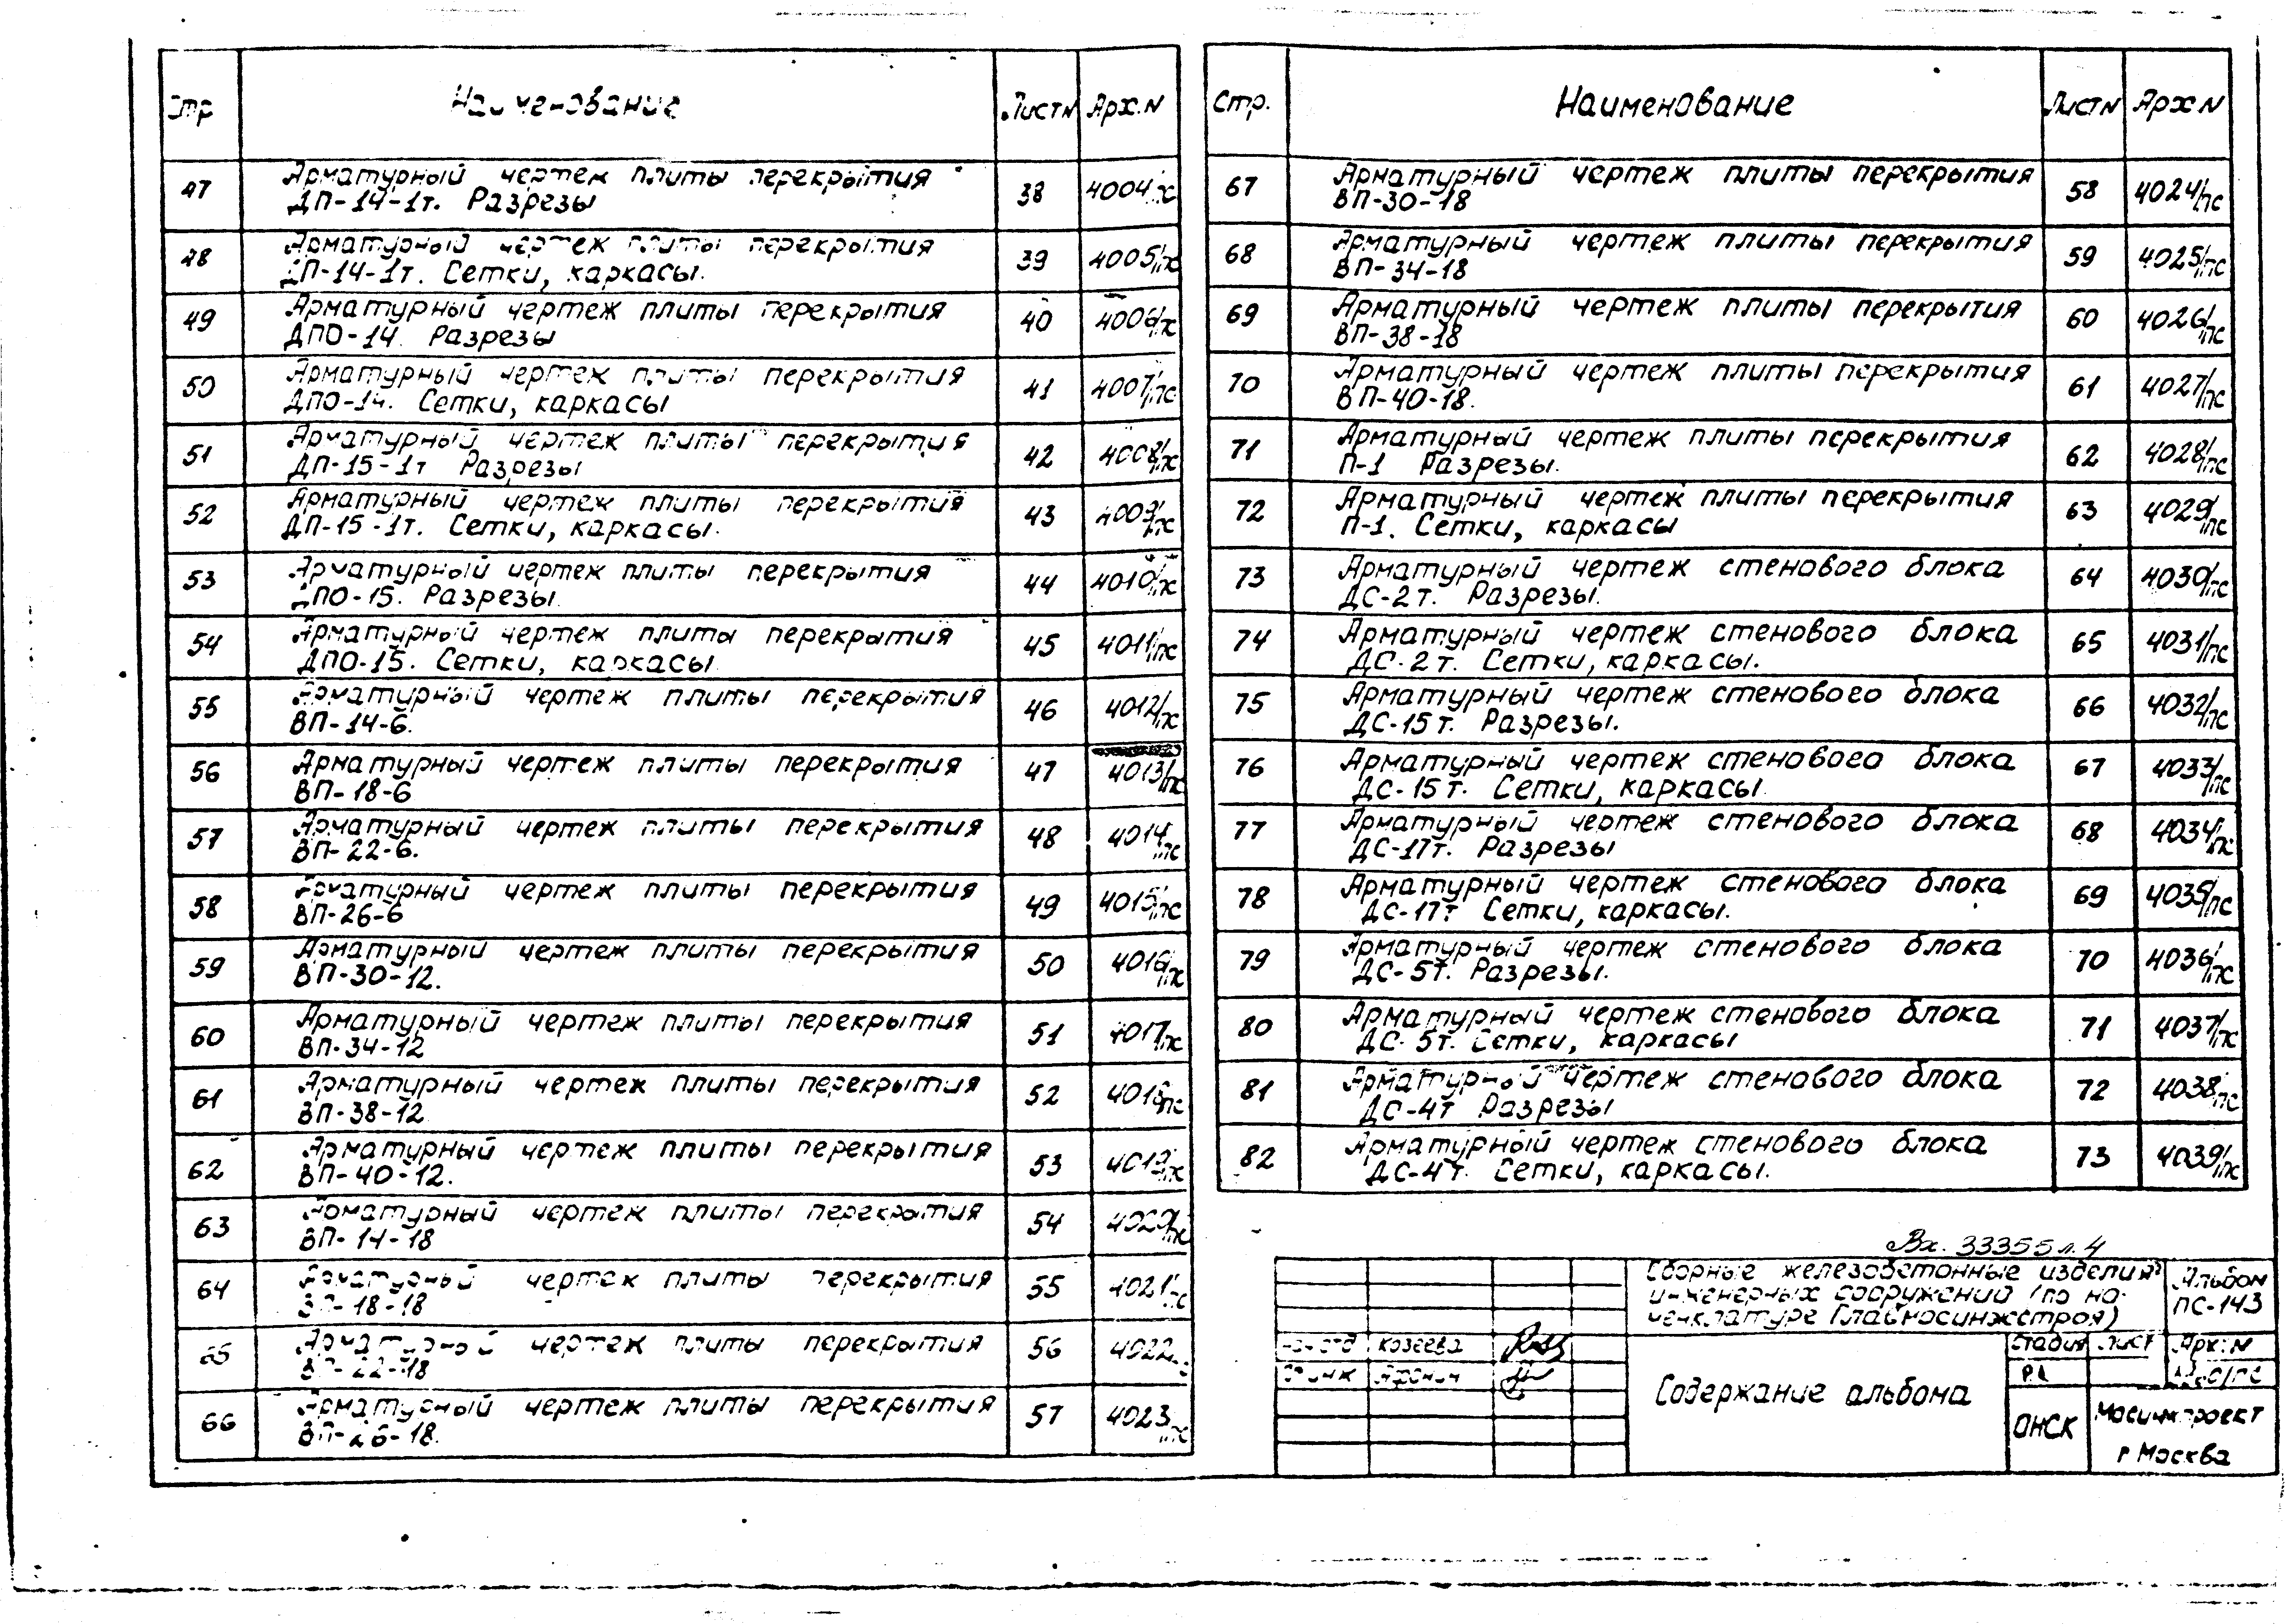 Стр Наименование Лист N Арх. N
47 Арматурный чертеж плиты перекрытия ДП-14-1т. Разрезы 38 4004/пс
48 Арматурный чертеж плиты перекрытия ДП-14-1т. Сетки, каркасы. 39 4005/пс
49 Арматурный чертеж плиты перекрытия ДПО-14. Разрезы 40 4006/пс
50 Арматурный чертеж плиты перекрытия ДПО-14. Сетки, каркасы 41 4007/пс
51 Арматурный чертеж плиты перекрытия ДП-15-1т Разрезы 42 4008/пс
52 Арматурный чертеж плиты перекрытия ДП-15-1т. Сетки, каркасы. 43 4009/пс
53 Арматурный чертеж плиты перекрытия ДПО-15. Разрезы. 44 4010/пс
54 Арматурный чертеж плиты перекрытия ДПО-15. Сетки, каркасы. 45 4011/пс
55 Арматурный чертеж плиты перекрытия ВП-14-6. 46 4012/пс
56 Арматурный чертеж плиты перекрытия ВП-18-6 47 4013/пс
57 Арматурный чертеж плиты перекрытия ВП-22-6. 48 4014/пс
58 Арматурный чертеж плиты перекрытия ВП-26-6 49 4015/пс
59 Арматурный чертеж плиты перекрытия ВП-30-12. 50 4016/пс
60 Арматурный чертеж плиты перекрытия ВП-34-12 51 4017/пс
61 Арматурный чертеж плиты перекрытия ВП-38-12 52 4018/пс
62 Арматурный чертеж плиты перекрытия ВП-40-12. 53 4019/пс
63 Арматурный чертеж плиты перекрытия ВП-14-18 54 4020/пс
64 Арматурный чертеж плиты перекрытия ВП-18-18 55 4021/пс
65 Арматурный чертеж плиты перекрытия ВП-22-18 56 4022
66 Арматурный чертеж плиты перекрытия ВП-26-18. 57 4023/пс
Стр. Наименование Лист N Арх N
67 Арматурный чертеж плиты перекрытия ВП-30-18 58 4024/пс
68 Арматурный чертеж плиты перекрытия ВП-34-18 59 4025/пс
69 Арматурный чертеж плиты перекрытия ВП-38-18 60 4026/пс
70 Арматурный чертеж плиты перекрытия ВП-40-18. 61 4027/пс
71 Арматурный чертеж плиты перекрытия П-1 Разрезы. 62 4028/пс
72 Арматурный чертеж плиты перекрытия П-1. Сетки, каркасы 63 4029/пс
73 Арматурный чертеж стенового блока ДС-2т. Разрезы. 64 4030/пс
74 Арматурный чертеж стенового блока ДС-2т. Сетки, каркасы. 65 4031/пс
75 Арматурный чертеж стенового блока ДС-15т. Разрезы. 66 4032/пс
76 Арматурный чертеж стенового блока ДС-15т. Сетки, каркасы. 67 4033/пс
77 Арматурный чертеж стенового блока ДС-17т. Разрезы 68 4034/пс
78 Арматурный чертеж стенового блока ДС-17т Сетки, каркасы. 69 4035/пс
79 Арматурный чертеж стенового блока ДС-5т. Разрезы. 70 4036/пс
80 Арматурный чертеж стенового блока ДС-5т. Сетки, каркасы 71 4037/пс
81 Арматурный чертеж стенового блока ДС-4т Разрезы 72 4038/пс
82 Арматурный чертеж стенового блока ДС-4т. Сетки, каркасы. 73 4039/пс
Вх. 33355 л. 4
Сборные железобетонные изделия
инженерных сооружений (по но-
менклатуре Главмосинжстроя)
Альбом
ПС-143
Нач отд Козеева
Афонин
Содержание альбома
Стадия Лист Арх. N
ОНСК
Мосинжпроект
г Москва